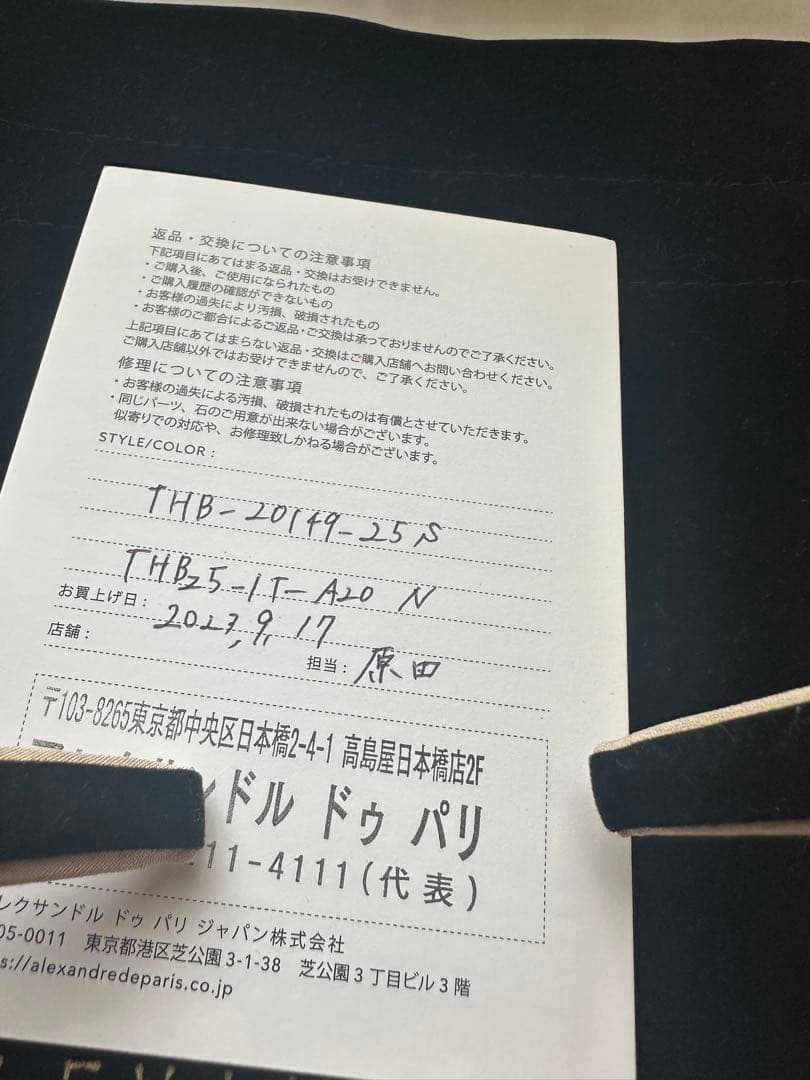 返品・交換についての注意事項
下記項目にあてはまる返品・交換はお受けできません。
・ご購入後、ご使用になられたもの
・ご購入履歴の確認ができないもの
・お客様の過失により汚損、破損されたもの
・お客様のご都合によるご返品・ご交換は承っておりませんのでご了承ください。
上記項目にあてはまらない返品・交換はご購入店舗へお問い合わせください。
ご購入店舗以外ではお受けできませんので、ご了承ください。
修理についての注意事項
・お客様の過失による汚損、破損されたものは有償とさせていただきます。
・同じパーツ、石のご用意が出来ない場合がございます。
似寄りでの対応や、お修理致しかねる場合がございます。
STYLE/COLOR：
THB-20149-25 S
THB25-1T-A20 N
お買上げ日： 2023,9,17
店舗： 担当：原田
〒103-8265東京都中央区日本橋2-4-1 高島屋日本橋店2F
ンドル ドゥ パリ
11-4111(代表)
レクサンドル ドゥ パリ ジャパン株式会社
05-0011 東京都港区芝公園3-1-38 芝公園3丁目ビル3階
s://alexandredeparis.co.jp